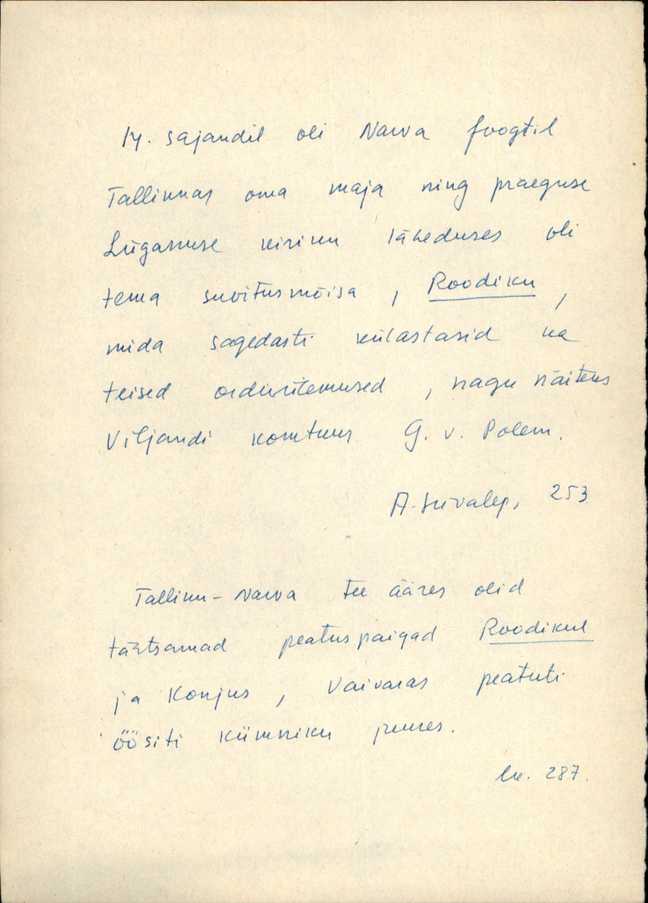 14. sajandil oli Narva foogtil
Tallinnas oma maja ning praeguse
Lüganuse kiriku läheduses oli
tema suvitusmõisa, Roodiku,
mida sagedasti külastasid ka
teised orduritemused, nagu näiteks
Viljandi komtuur G. v. Polem.
A. Süvalep, 253
Tallinn-Narva tee ääres olid
tähtsamad peatuspaigad Roodikul
ja Konjus, Vaivaras peatuti
öösiti kümniku juures.
lk. 287.